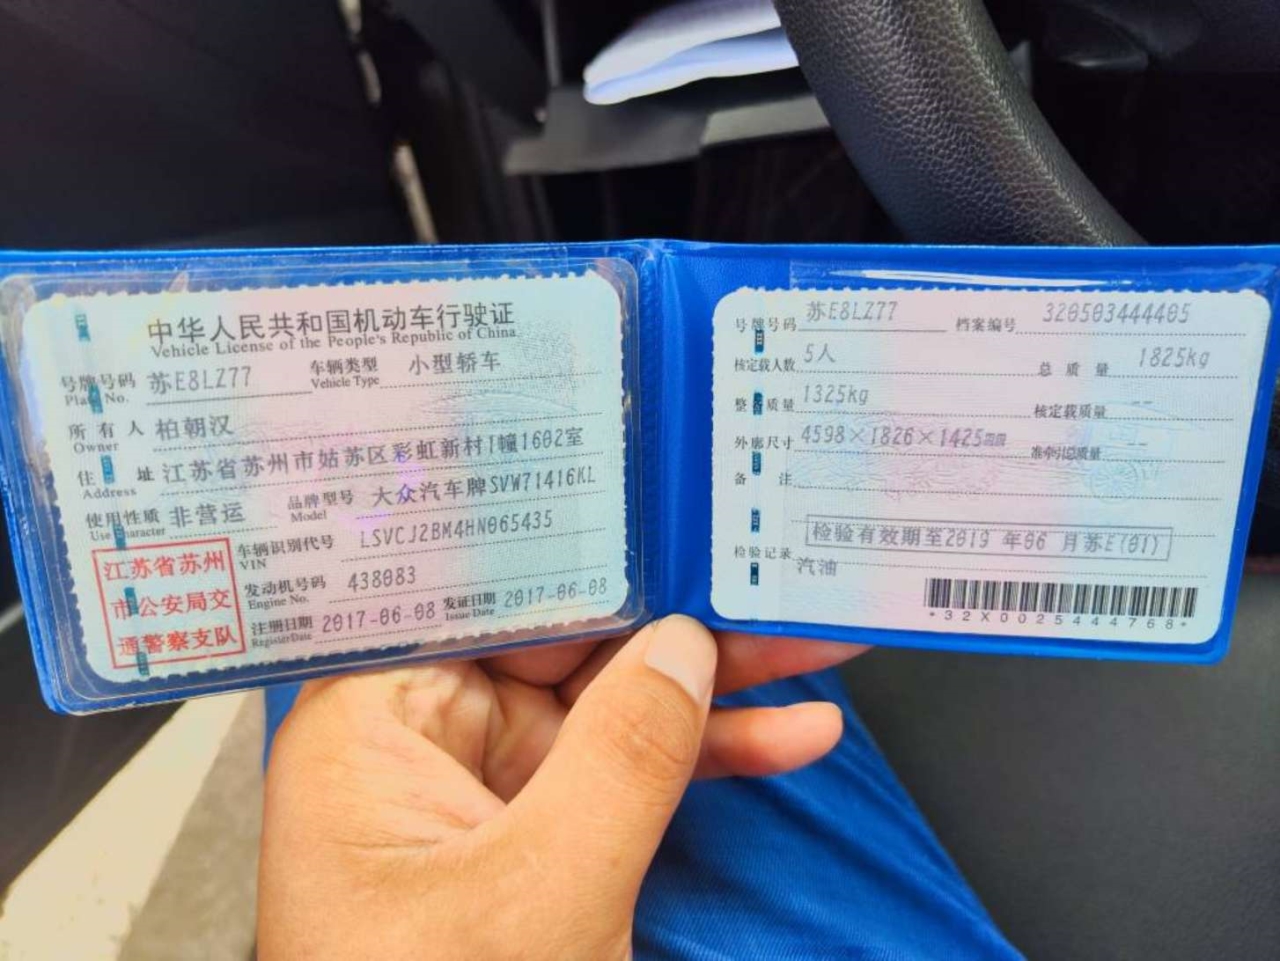 中华人民共和国机动车行驶证
Vehicle License of the People's Republic of China
号牌号码 苏E8LZ77 车辆类型 小型轿车
Plate No. Vehicle Type
所有人 柏朝汉
Owner
住址 江苏省苏州市姑苏区彩虹新村1幢1602室
Address
使用性质 非营运 品牌型号 大众汽车牌SVW71416KL
Use Character Model
车辆识别代号 LSVCJ2BM4HN065435
VIN
发动机号码 438083
Engine No.
注册日期 2017-06-08 发证日期 2017-06-08
Register Date Issue Date
江苏省苏州
市公安局交
通警察支队
号牌号码 苏E8LZ77 档案编号 320503444405
核定载人数 5人 总质量 1825kg
整备质量 1325kg 核定载质量 --
外廓尺寸 4598×1826×1425mm 准牵引总质量 --
备注
检验有效期至2019 年06 月苏E(01)
检验记录
汽油
*32X0025444768*